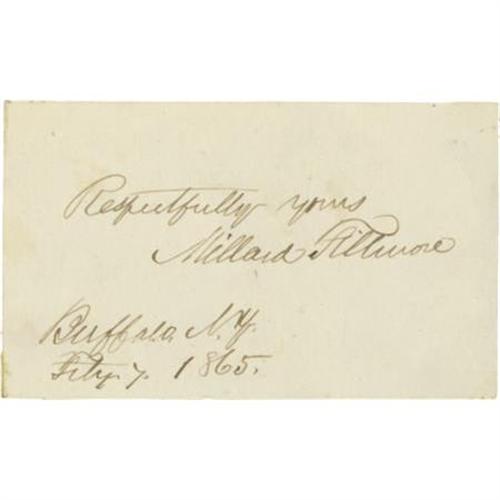 Respectfully yours
Millard Fillmore
Buffalo N.Y.
Feby. 7. 1865.